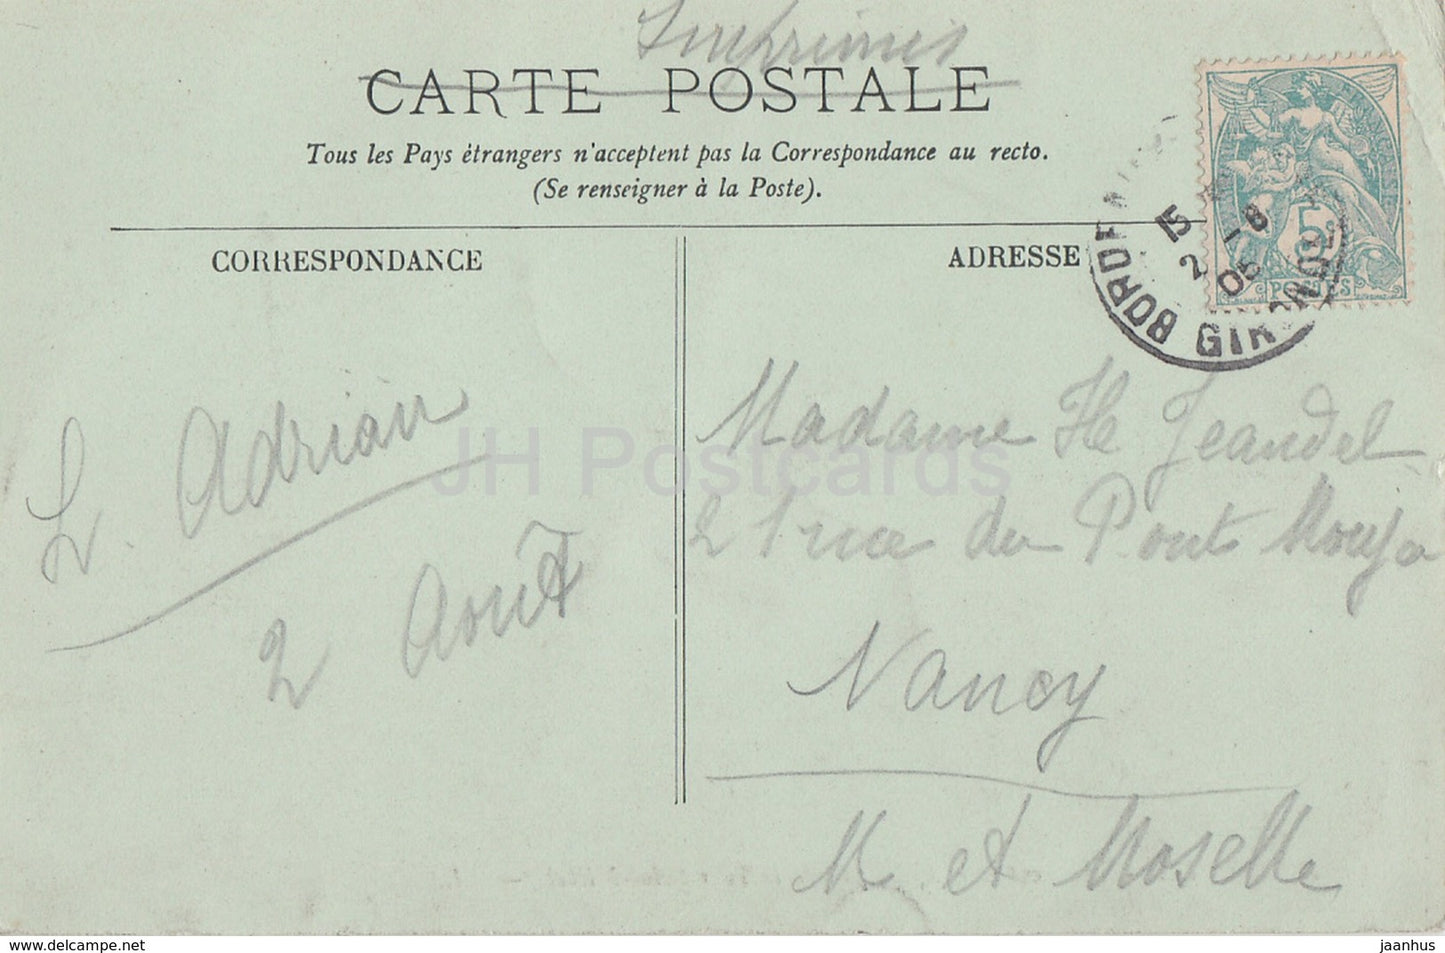 Imprimés
CARTE POSTALE
Tous les Pays étrangers n'acceptent pas la Correspondance au recto.
(Se renseigner à la Poste).
CORRESPONDANCE
ADRESSE
BORDEAUX
GIRONDE
15
2 -8
05
5c
POSTES
L. Adrian
2 Août
Madame H Jeandel
21 rue du Pont Mouja
Nancy
M. et Moselle
JH Postcards
www.delcampe.net
jaanhus